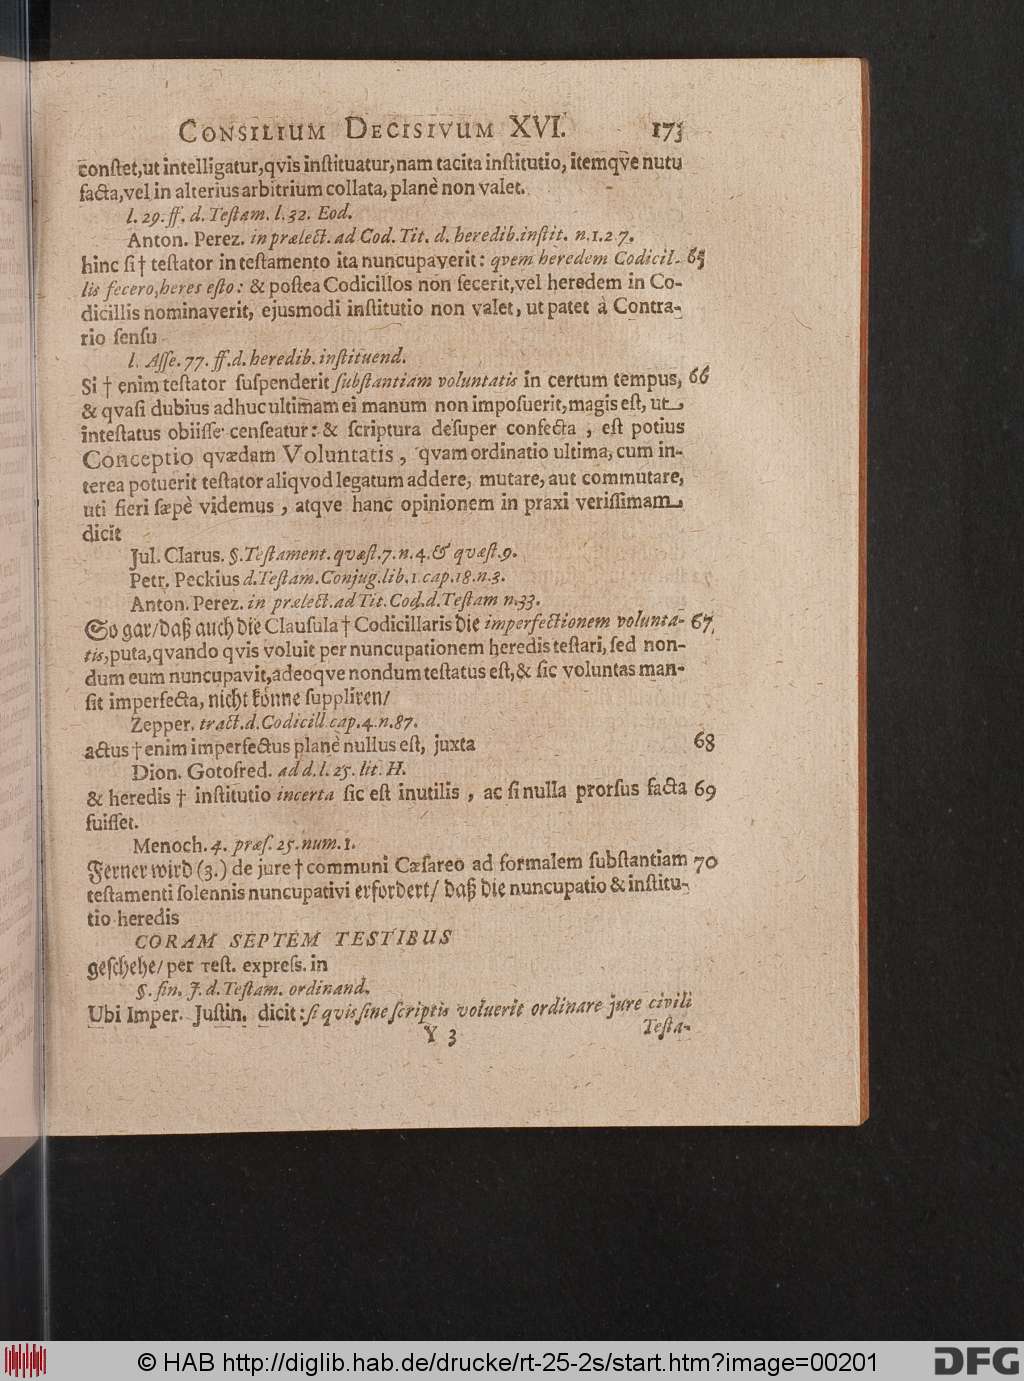 CONSILIUM DECISIVUM XVI. 173
constet, ut intelligatur, qvis instituatur, nam tacita institutio, itemqve nutu
facta, vel in alterius arbitrium collata, planè non valet.
l. 29. ff. d. Testam. l. 32. Eod.
Anton. Perez. in prælect. ad Cod. Tit. d. heredib. instit. n. 1. 2 7.
hinc si † testator in testamento ita nuncupaverit: qvem heredem Codicil- 65
lis fecero, heres esto: & postea Codicillos non fecerit, vel heredem in Co-
dicillis nominaverit, ejusmodi institutio non valet, ut patet à Contra-
rio sensu
l. Asse. 77. ff. d. heredib. instituend.
Si † enim testator suspenderit substantiam voluntatis in certum tempus, 66
& qvasi dubius adhuc ultimam ei manum non imposuerit, magis est, ut
intestatus obiisse censeatur: & scriptura desuper confecta, est potius
Conceptio qvædam Voluntatis, qvam ordinatio ultima, cum in-
terea potuerit testator aliqvod legatum addere, mutare, aut commutare,
uti fieri sæpè videmus, atqve hanc opinionem in praxi verissimam
dicit
Jul. Clarus. §. Testament. qvæst. 7. n. 4. & qvæst. 9.
Petr. Peckius d. Testam. Conjug. lib. 1 cap. 18. n. 3.
Anton. Perez. in prælect. ad Tit. Cod. d. Testam n. 33.
So gar/ daß auch die Clausula † Codicillaris die imperfectionem volunta- 67
tis, puta, qvando qvis voluit per nuncupationem heredis testari, sed non-
dum eum nuncupavit, adeoqve nondum testatus est, & sic voluntas man-
sit imperfecta, nicht könne suppliren/
Zepper. tract. d. Codicill. cap. 4. n. 87.
actus † enim imperfectus planè nullus est, juxta 68
Dion. Gotofred. ad d. l. 25. lit. H.
& heredis † institutio incerta sic est inutilis, ac si nulla prorsus facta 69
fuisset.
Menoch. 4. præs. 25. num. 1.
Ferner wird (3.) de jure † communi Cæsareo ad formalem substantiam 70
testamenti solennis nuncupativi erfordert/ daß die nuncupatio & institu-
tio heredis
CORAM SEPTEM TESTIBUS
geschehe/ per test. expres. in
§. fin. J. d. Testam. ordinand.
Ubi Imper. Justin. dicit: si qvis sine scriptis voluerit ordinare jure civili
Y 3 Testa-
© HAB http://diglib.hab.de/drucke/rt-25-2s/start.htm?image=00201
DFG